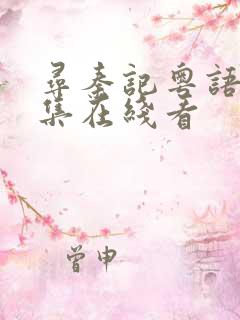 尋秦記粵語
集在綫看
曾申